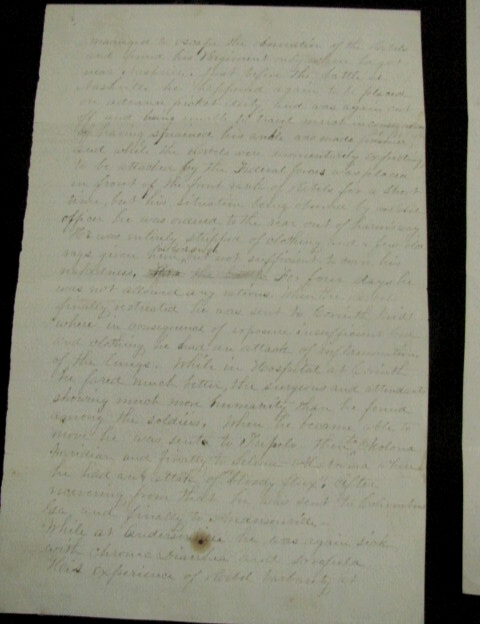 managed to escape the observation of the Rebels
and found his Regiment only when he got
near Nashville. Just before the battle at
Nashville he happened again to be placed
on advance picket duty and was again cut
off and being unable to travel
having sprained his ankle was made prisoner
and while the Rebels were momentarily expecting
to be attacked by the Federal forces was placed
in front of the front rank of Rebels for a short
time, but his situation being observed by
officer he was ordered to the rear out of harms way
He was entirely stripped of clothing and a few old
rags given him but not sufficient to cover his
nakedness. For four days he
was not allowed any rations. When the Rebels
finally retreated he was sent to Corinth
where in consequence of exposure insufficient food
and clothing he had an attack of inflammation
of the lungs. While in Hospital at Corinth
he fared much better, the surgeons and attendants
showing much more humanity than he found
among the soldiers. When he became able to
move he was sent to Tupelo then Okolona
Meridian and finally to Selma Alabama where
he had an attack of bloody flux. After
recovering from that he was sent to Columbus
Ga, and finally to Andersonville—
While at Andersonville he was again sick
with chronic Diarrhea and Scrofula
His experience of Rebel barbarity at